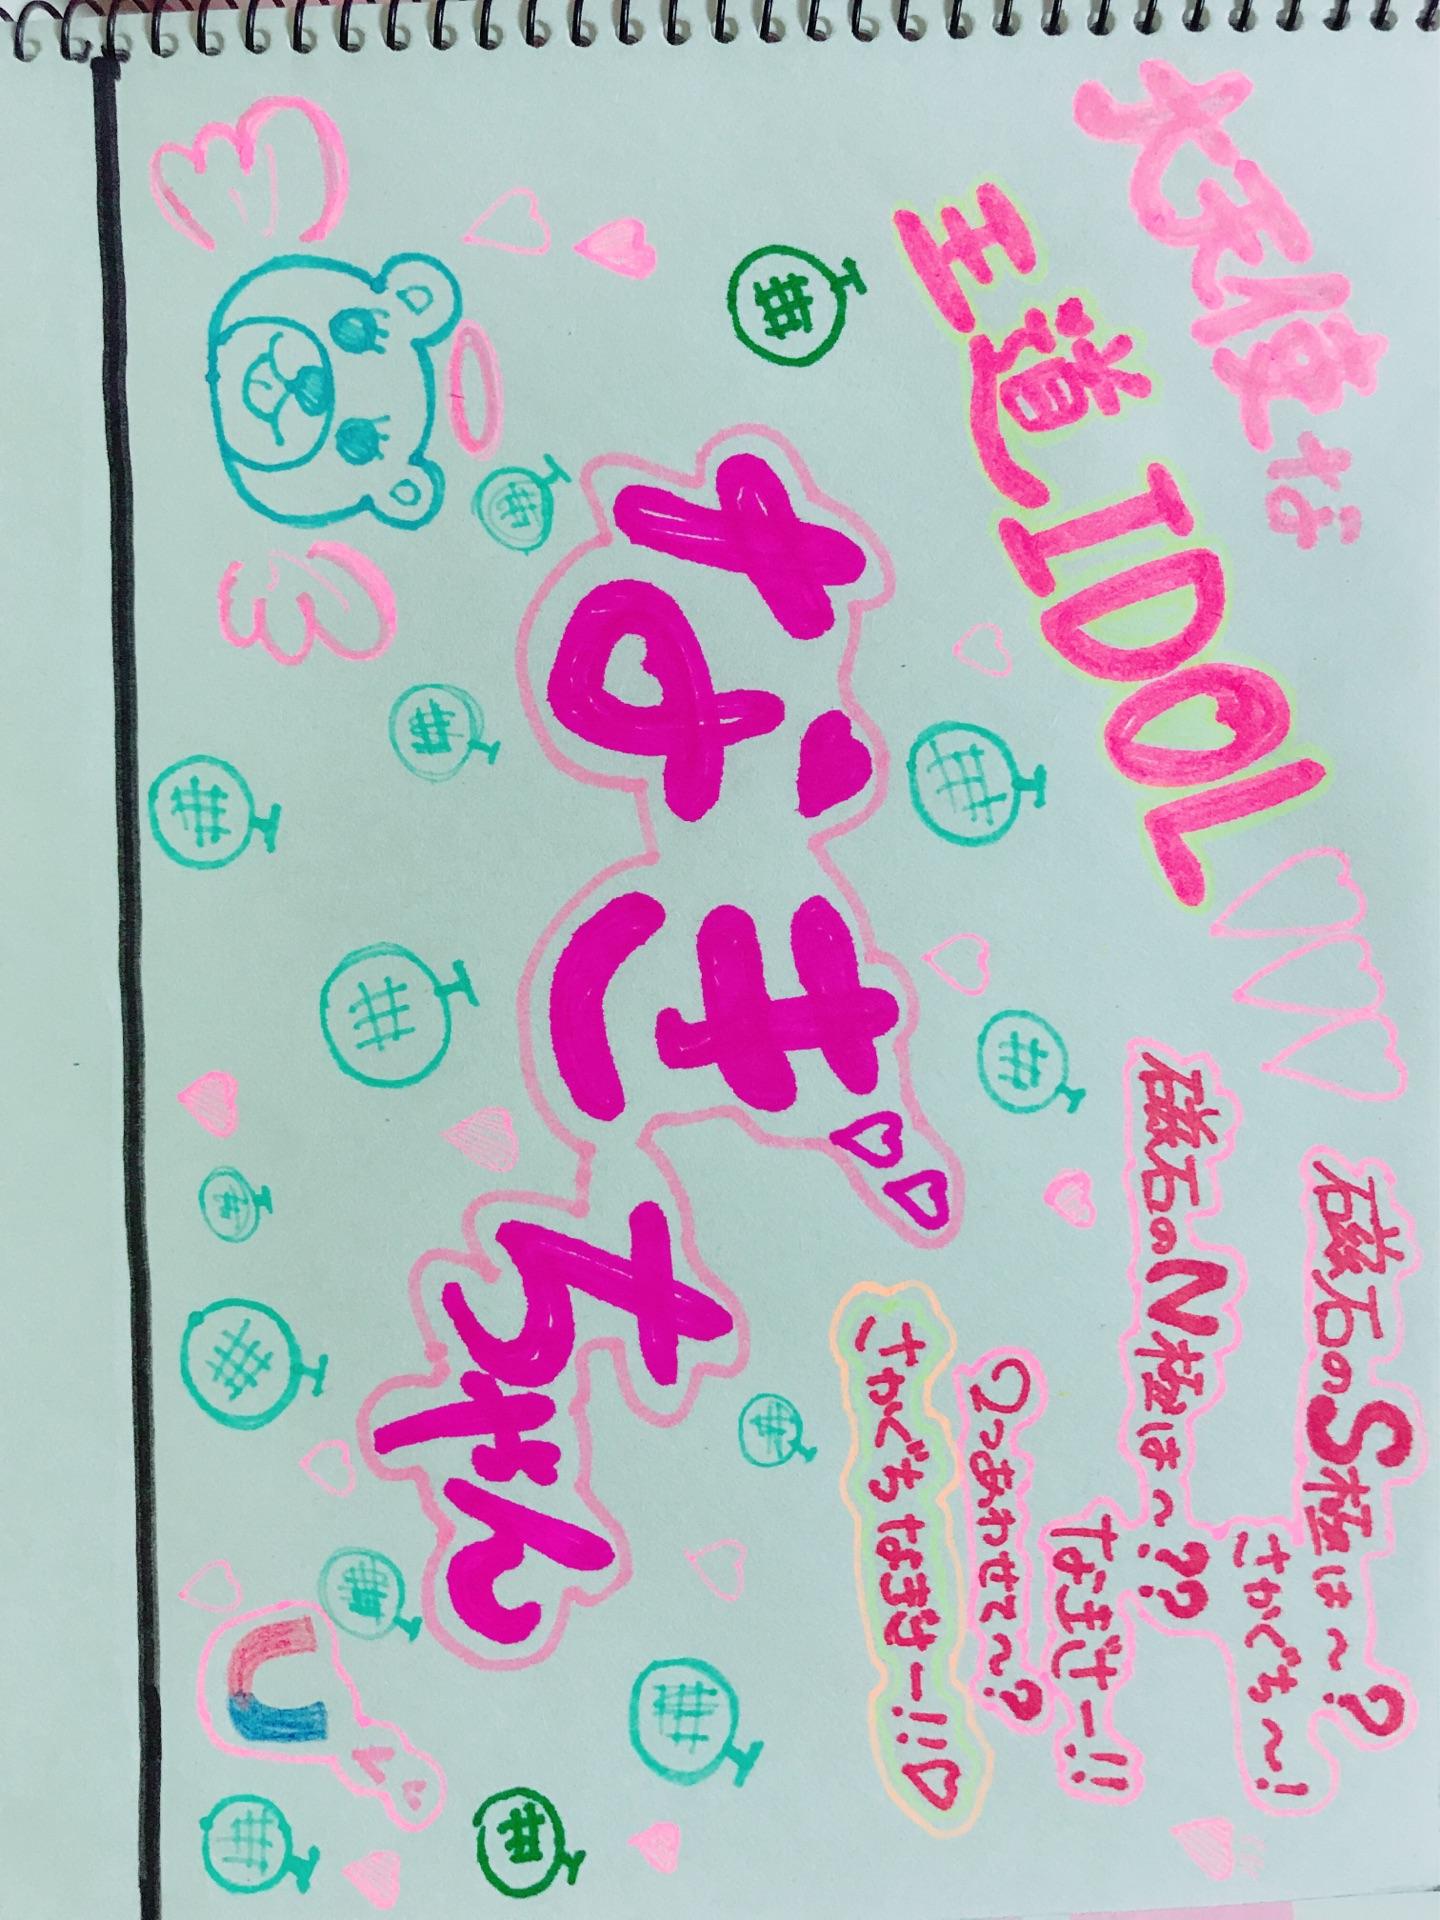 大天使な
王道IDOL♡♡♡
なぎちゃん
磁石のS極は〜?
さかぐち〜!
磁石のN極は〜??
なぎさー!!
2つあわせて〜?
さかぐちなぎさー!!♡